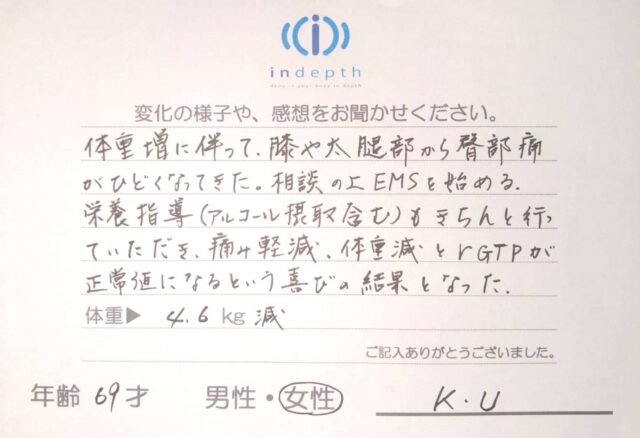 indepth
変化の様子や、感想をお聞かせください。
体重増に伴って、膝や太腿部から臀部痛
がひどくなってきた。相談の上EMSを始める。
栄養指導(アルコール摂取含む)もきちんと行っ
ていただき、痛み軽減、体重減とrGTPが
正常値になるという喜びの結果となった。
体重▶ 4.6 kg 減
ご記入ありがとうございました。
年齢 69才 男性・女性 K.U